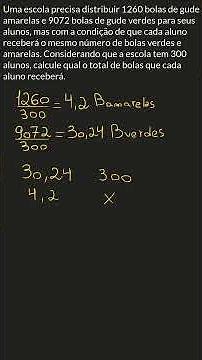 Uma escola precisa distribuir 1260 bolas de gude
amarelas e 9072 bolas de gude verdes para seus
alunos, mas com a condição de que cada aluno
receberá o mesmo número de bolas verdes e
amarelas. Considerando que a escola tem 300
alunos, calcule qual o total de bolas que cada
aluno receberá.
1260/300 = 4,2 Bamarelas
9072/300 = 30,24 Bverdes
30,24 300
4,2 x